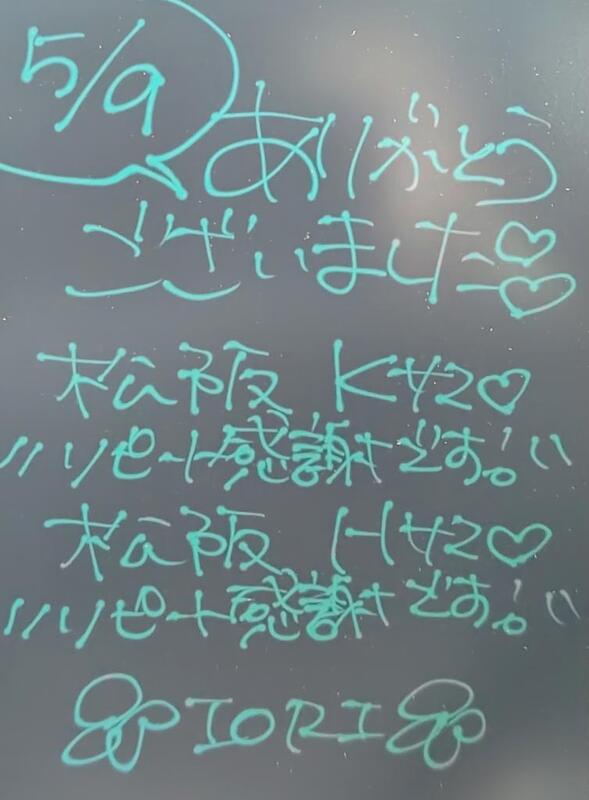 5/9
ありがとう
ございました♡♡
松阪 Kサマ♡
リピート感謝です。
松阪 Hサマ♡
リピート感謝です。
IORI